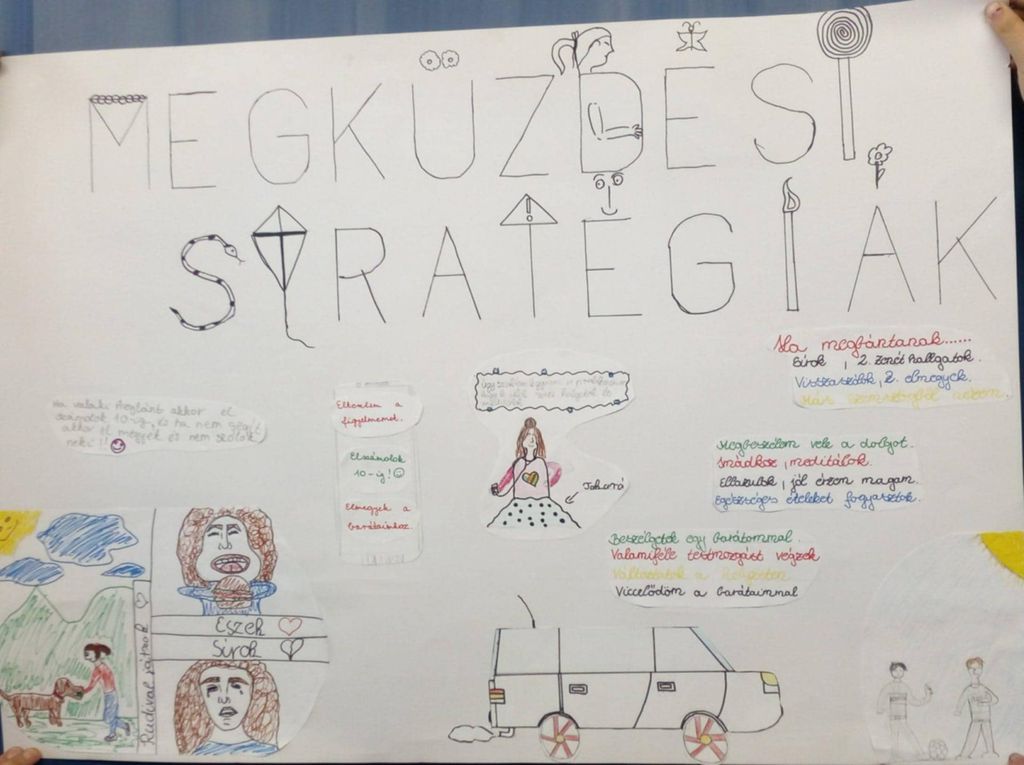 MEGKÜZDÉSI
STRATÉGIÁK
Ha megbántanak......
Sírok, 2. zenét hallgatok.
Visszaszólok, 2. elmegyek.
Más szemszögből nézem.
Ha valaki megbánt akkor el
számolok 10-ig, és ha nem segít
akkor el megyek és nem szólok
neki!!!
Elterelem a
figyelmemet.
Elszámolok
10-ig!
Elmegyek a
barátaimhoz.
Megbeszélem vele a dolgot.
Imádkoz, meditálok.
Ellazulok, jól érzem magam.
Egészséges ételeket fogyasztok.
Beszélgetek egy barátommal.
Valamiféle testmozgást végzek
Változtatok a
Viccelődöm a barátaimmal
Eszek
Sírok